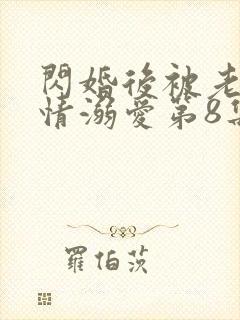 閃婚後被老
情溺愛第8集
羅伯茨